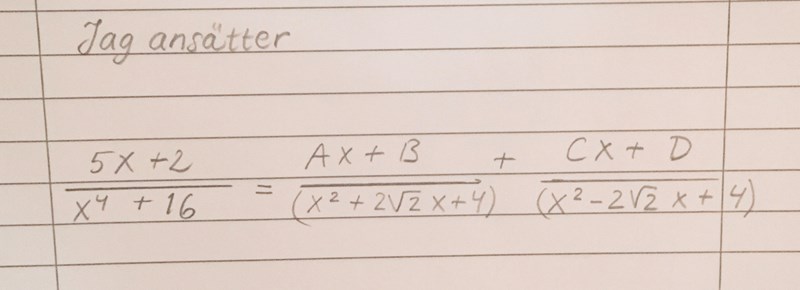 Jag ansätter
5x+2 / x⁴ + 16 = Ax + B / (x² + 2√2 x+4) + Cx + D / (x² - 2√2 x + 4)